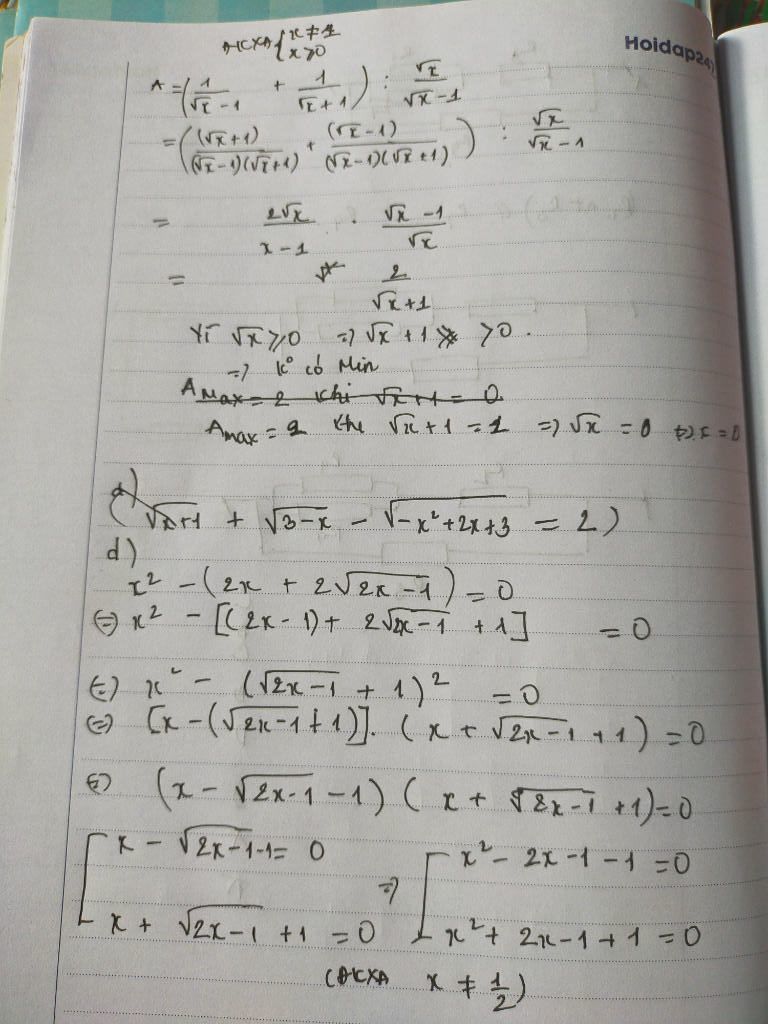 ĐKXĐ { x ≠ 1
x ≥ 0
Hoidap247
A = (1/(√x - 1) + 1/(√x + 1)) : √x/(√x - 1)
= ((√x + 1)/((√x - 1)(√x + 1)) + (√x - 1)/((√x - 1)(√x + 1))) : √x/(√x - 1)
= 2√x/(x - 1) . (√x - 1)/√x
= 2/(√x + 1)
Vì √x ≥ 0 => √x + 1 > 0.
=> k° có Min
A Max = 2 khi √x + 1 = 0
A max = 2 khi √x + 1 = 1 => √x = 0 <=> x = 0
(√(x+1) + √(3-x) - √(-x² + 2x + 3) = 2)
d)
x² - (2x + 2√(2x-1)) = 0
<=> x² - [(2x - 1) + 2√(2x-1) + 1] = 0
<=> x² - (√(2x-1) + 1)² = 0
<=> [x - (√(2x-1) + 1)]. (x + √(2x-1) + 1) = 0
<=> (x - √(2x-1) - 1) (x + √(2x-1) + 1) = 0
[ x - √(2x-1) - 1 = 0 => [ x² - 2x - 1 - 1 = 0
x + √(2x-1) + 1 = 0 x² + 2x - 1 + 1 = 0
(ĐKXĐ x ≠ 1/2)